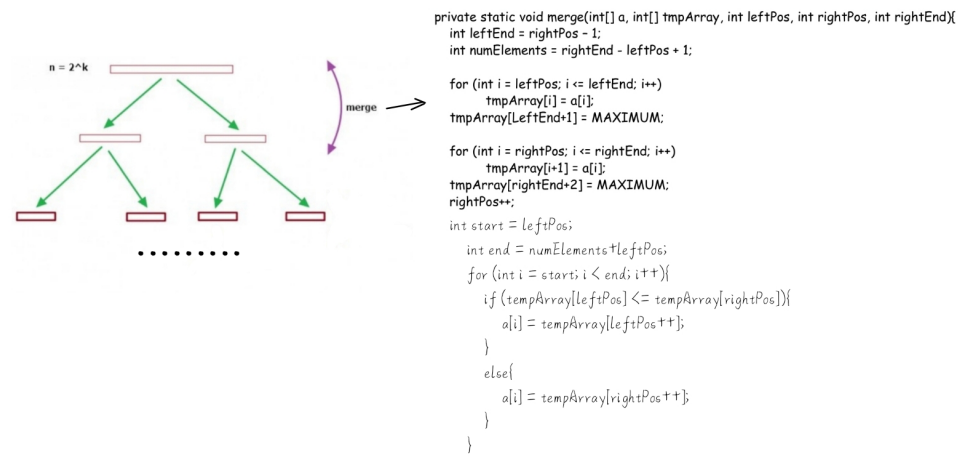 n = 2^k
merge
private static void merge(int[] a, int[] tmpArray, int leftPos, int rightPos, int rightEnd){
int leftEnd = rightPos – 1;
int numElements = rightEnd - leftPos + 1;
for (int i = leftPos; i <= leftEnd; i++)
tmpArray[i] = a[i];
tmpArray[LeftEnd+1] = MAXIMUM;
for (int i = rightPos; i <= rightEnd; i++)
tmpArray[i+1] = a[i];
tmpArray[rightEnd+2] = MAXIMUM;
rightPos++;
int start = leftPos;
int end = numElements+leftPos;
for (int i = start; i < end; i++){
if (tempArray[leftPos] <= tempArray[rightPos]){
a[i] = tempArray[leftPos++];
}
else{
a[i] = tempArray[rightPos++];
}
}